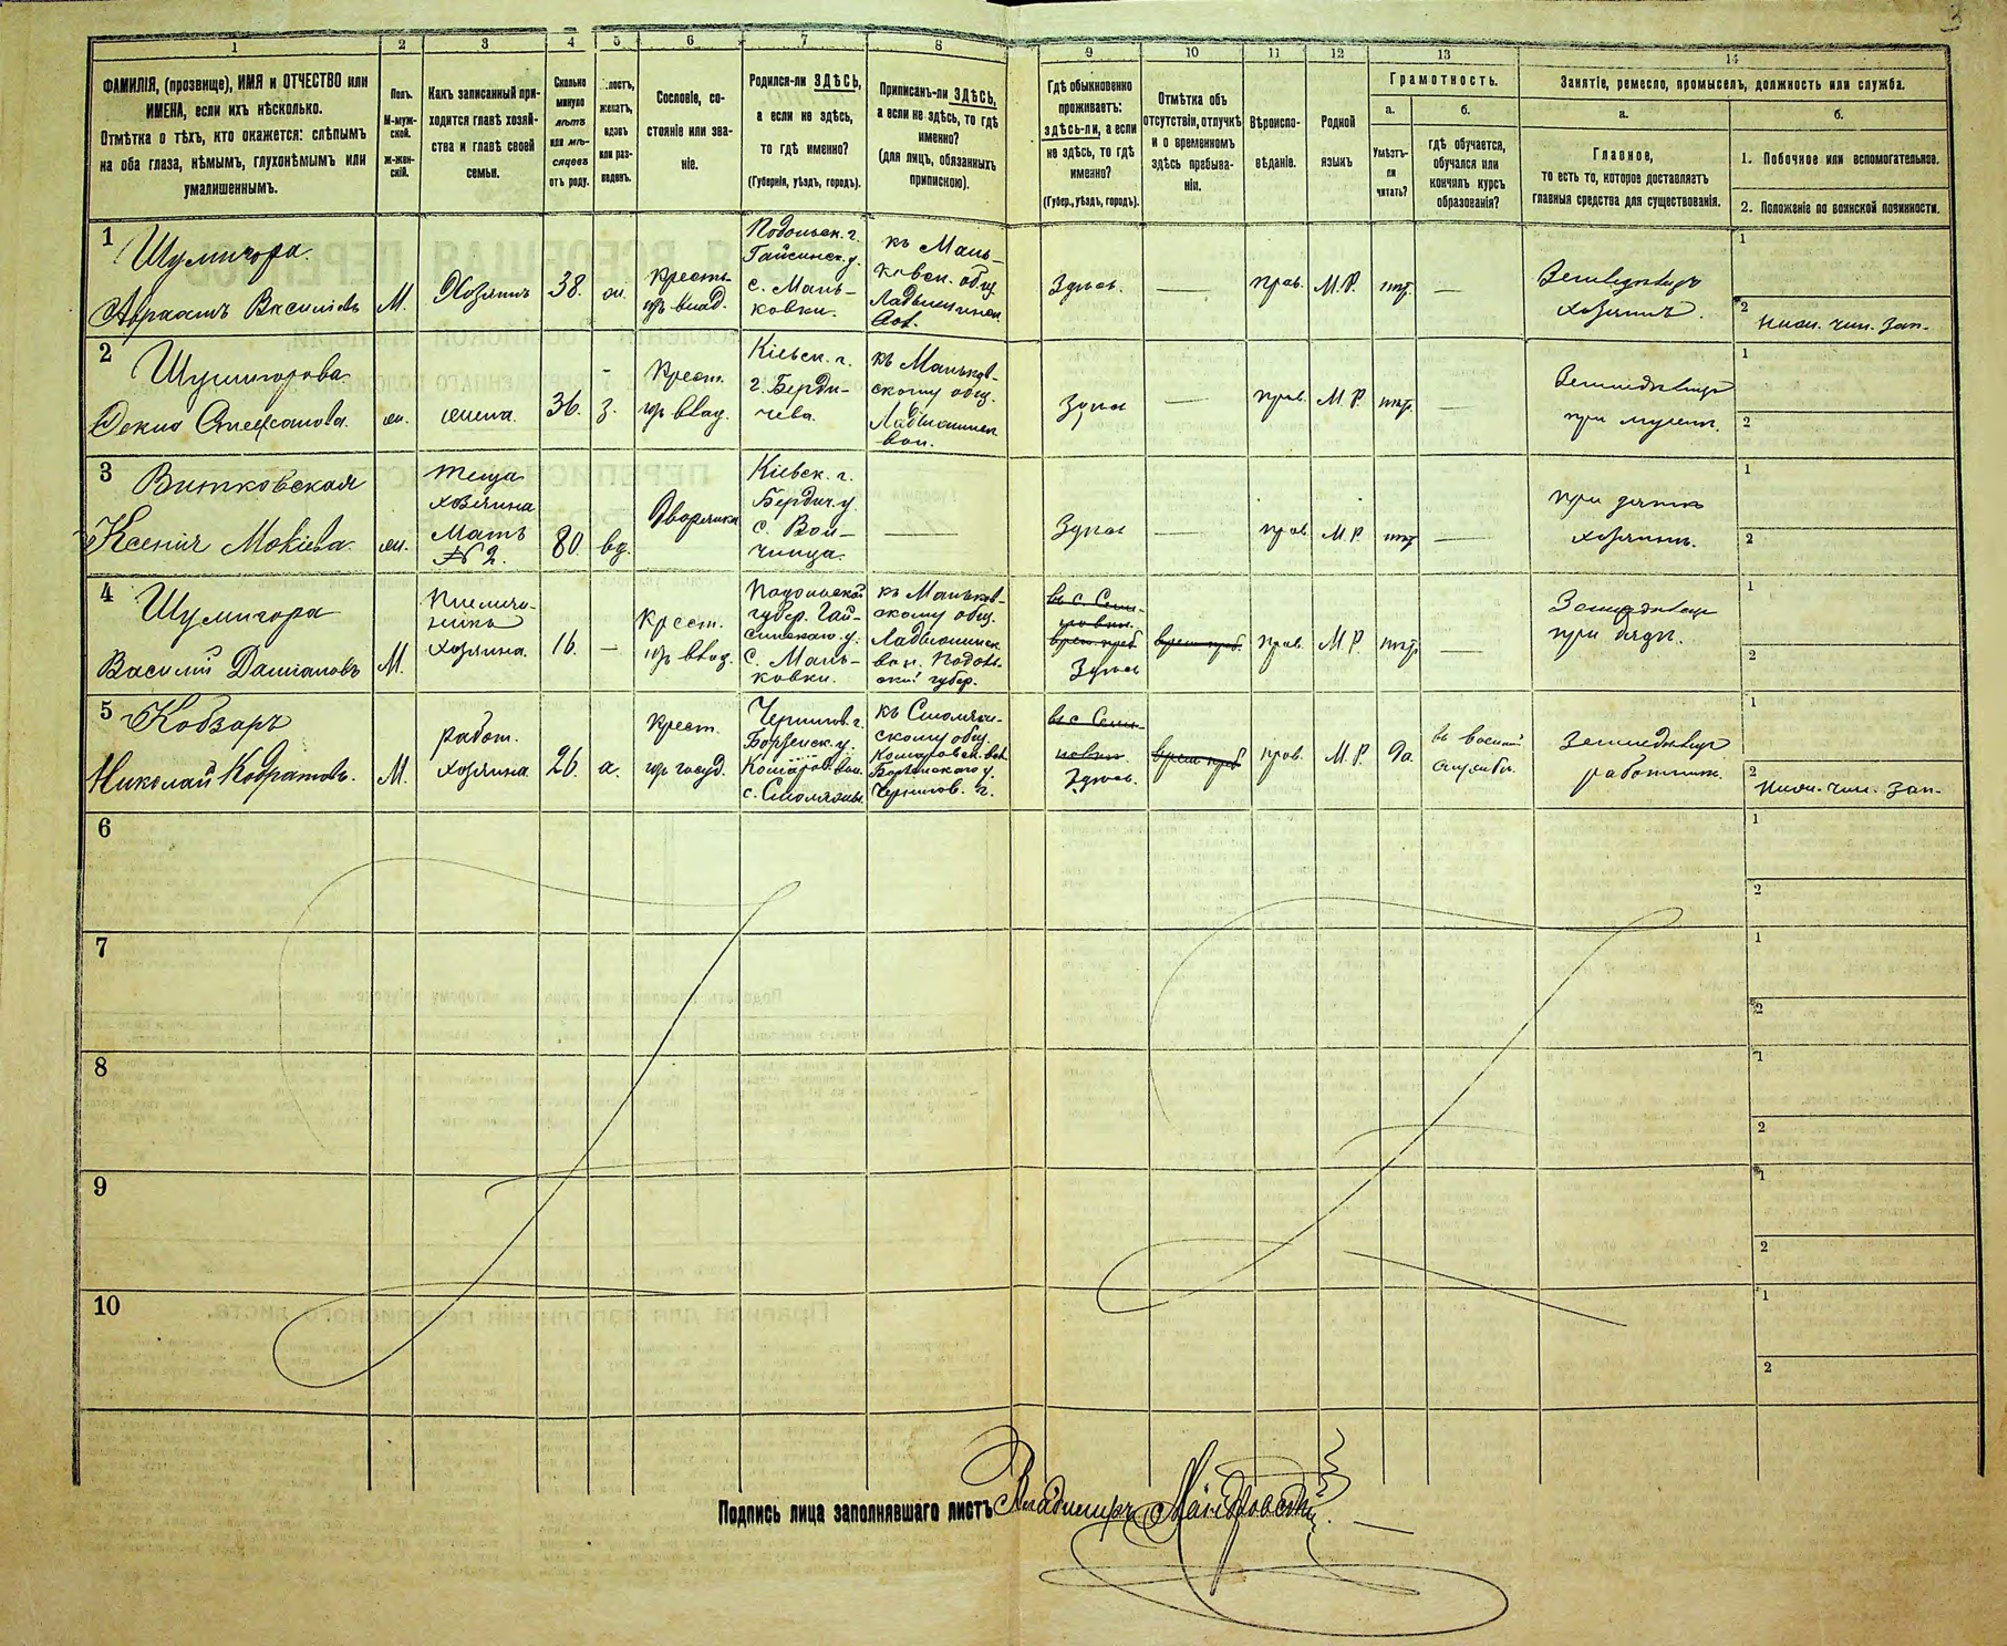 3
1 2 3 4 5 6 7 8 9 10 11 12 13 14
ФАМИЛІЯ, (прозвище), ИМЯ и ОТЧЕСТВО или
ИМЕНА, если ихъ нѣсколько.
Отмѣтка о тѣхъ, кто окажется: слѣпымъ
на оба глаза, нѣмымъ, глухонѣмымъ или
умалишеннымъ.
Полъ.
М-муж-
ской.
Ж-жен-
скій.
Какъ записанный при-
ходится главѣ хозяй-
ства и главѣ своей
семьи.
Сколько
минуло
лѣтъ
или мѣ-
сяцевъ
отъ роду.
женатъ,
вдовъ
или раз-
веденъ.
Сословіе, со-
стояніе или зва-
ніе.
Родился-ли ЗДѢСЬ,
а если не здѣсь,
то гдѣ именно?
(Губернія, уѣздъ, городъ).
Приписанъ-ли ЗДѢСЬ,
а если не здѣсь, то гдѣ
именно?
(для лицъ, обязанныхъ
припискою).
Гдѣ обыкновенно
проживаетъ:
здѣсь-ли, а если
не здѣсь, то гдѣ
именно?
(Губер., уѣздъ, городъ).
Отмѣтка объ
отсутствіи, отлучкѣ
и о временномъ
здѣсь пребыва-
ніи.
Вѣроиспо-
вѣданіе.
Родной
языкъ
Грамотность.
а.
Умѣетъ-
ли
читать?
б.
гдѣ обучается,
обучался или
кончилъ курсъ
образованія?
Занятіе, ремесло, промыселъ, должность или служба.
а.
Главное,
то есть то, которое доставляетъ
главныя средства для существованія.
б.
1. Побочное или вспомогательное.
2. Положеніе по воинской повинности.
1
Шумигора
Авраамъ Василіевъ
М.
Хозяинъ
38.
Крестьян.
изъ влад.
Подольск. г.
Гайсинск. у.
с. Мань-
ковки.
къ Мань-
ковск. общ.
Ладыжинск.
Здѣсь.
—
прав.
М.Р.
нѣт.
—
Земледѣлецъ
хозяинъ.
1
2
нижн. чин. зап.
2
Шумигорова
Александрова.
жен.
жена.
36.
з.
Крест.
изъ влад.
Кіевск. г.
г. Берди-
чева.
къ Маньков-
скому общ.
Ладыжинск.
вол.
Здѣсь
—
прав.
М.Р.
нѣт.
—
Земледѣлецъ
при мужѣ.
1
2
3
Витковская
Ксенія Мокіева.
жен.
теща
хозяина
Мать
№ 2.
80.
вд.
Дворянка
Кіевск. г.
Бердич. у.
с. Вой-
—
Здѣсь
прав
М.Р.
нѣт
—
при зятѣ
хозяинѣ.
1
2
4
Шумигора
Василій Даміановъ
М.
Племян-
никъ
хозяина.
16.
—
Крест.
изъ влад.
Подольской
губер. Гай-
синскаго у.
с. Мань-
ковки.
къ Маньков-
скому общ.
Ладыжинск.
вол. Подоль-
ской губер.
врем. преб
Здѣсь
врем. преб.
прав.
М.Р.
нѣт.
—
Земледѣлецъ
при дядѣ.
1
2
5
Кобзаръ
Николай Кодратовъ.
М.
работ.
хозяина
26.
Крест.
изъ госуд.
Чернигов. г.
Борзенск. у.
Комаров. вол.
с. Смоляжъ
къ Смоляж-
скому общ.
Комаровск. вол.
Борзенскаго у.
Чернигов. г.
Здѣсь.
врем. преб
прав.
М.Р.
да.
въ военной
службѣ.
Земледѣлецъ
работникъ.
1
2
нижн. чин. зап.
6
1
2
7
1
2
8
1
2
9
1
2
10
1
2
Подпись лица заполнявшаго листъ Владимиръ